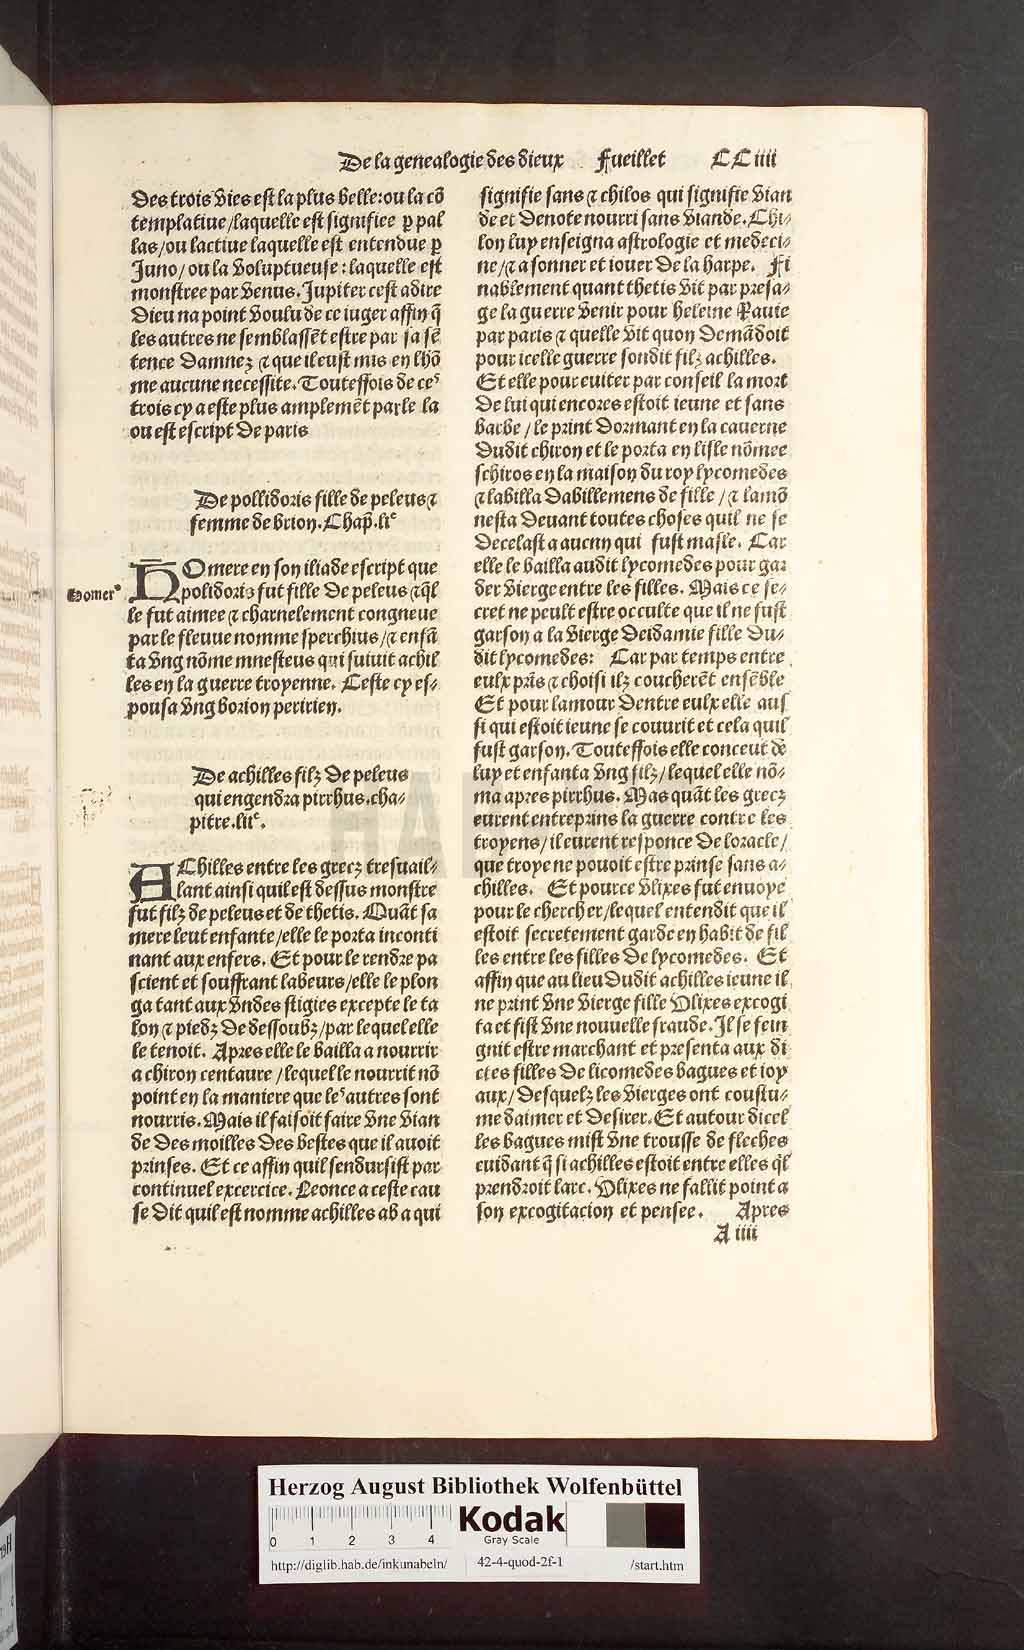 De la genealogie des dieux Fueillet CCiiii
des trois vies est la plus belle: ou la cõ
templatiue/laquelle est signifiee ꝑ pal
las/ou lactiue laquelle est entendue ꝑ
Juno/ou la voluptueuse: laquelle est
monstree par venus. Jupiter cest adire
dieu na point voulu de ce iuger affin q̃
les autres ne semblassẽt estre par sa sẽ
tence damnez ⁊ que il eust mis en lhõ
me aucune necessite. Touteffois de ceˢ
trois cy a este plus amplemẽt parle la
ou est escript de paris
De pollidoris fille de peleus ⁊
femme de brion. Chap̃. liᵉ
Homer⁹
HOmere en son iliade escript que
polidoris fut fille de peleus ⁊ q̃l
le fut aimee ⁊ charnelement congneue
par le fleuue nomme sperchius/⁊ enfã
ta vng nõme mnesteus qui suiuit achil
les en la guerre troyenne. Ceste cy es-
pousa vng borion peririen.
De achilles filz de peleus
qui engendra pirrhus. cha-
pitre. liiᵉ.
AChilles entre les grecz tresuail-
lant ainsi quil est dessus monstre
fut filz de peleus et de thetis. Quãt sa
mere leut enfante/elle le porta inconti
nant aux enfers. Et pour le rendre pa
scient et souffrant labeurs/elle le plon
ga tant aux vndes stigies excepte le ta
lon ⁊ piedz de dessoubz/par lequel elle
le tenoit. Apres elle le bailla a nourrir
a chiron centaure/lequel le nourrit nõ
point en la maniere que leˢ autres sont
nourris. Mais il faisoit faire vne vian
de des moilles des bestes que il auoit
prinses. Et ce affin quil sendursist par
continuel excercice. Leonce a ceste cau
se dit quil est nomme achilles ab a qui
signifie sans ⁊ chilos qui signifie vian
de et denote nourri sans viande. Chi-
lon luy enseigna astrologie et medeci-
ne/⁊ a sonner et iouer de la harpe. Fi
nablement quant thetis vit par presa-
ge la guerre venir pour heleine Rauie
par paris ⁊ quelle vit quon demãdoit
pour icelle guerre sondit filz achilles.
Et elle pour euiter par conseil la mort
de lui qui encores estoit ieune et sans
barbe/le print dormant en la cauerne
dudit chiron et le porta en lisle nõmee
schiros en la maison du roy lycomedes
⁊ labilla dabillemens de fille/⁊ lamõ
nesta deuant toutes choses quil ne se
decelast a aucun qui fust masle. Car
elle le bailla audit lycomedes pour gar
der vierge entre les filles. Mais ce se-
cret ne peult estre occulte que il ne fust
garson a la vierge deidamie fille du-
dit lycomedes: Car par temps entre
eulx prĩs ⁊ choisi ilz coucherẽt ensẽble
Et pour lamour dentre eulx elle aus
si qui estoit ieune se couurit et cela quil
fust garson. Touteffois elle conceut de
luy et enfanta vng filz/lequel elle nõ-
ma apres pirrhus. Mas quãt les grecz
eurent entreprins la guerre contre les
troyens/il eurent responce de loracle/
que troye ne pouoit estre prinse sans a-
chilles. Et pource vlixes fut enuoye
pour le chercher/lequel entendit que il
estoit secretement garde en habit de fil
les entre les filles de lycomedes. Et
affin que au lieu dudit achilles ieune il
ne print vne vierge fille vlixes excogi
ta et fist vne nouuelle fraude. Il se fein
gnit estre marchant et presenta aux di
ctes filles de licomedes bagues et ioy
aux/desquelz les vierges ont coustu-
me daimer et desirer. Et autour dicel
les bagues mist vne trousse de fleches
cuidant q̃ si achilles estoit entre elles q̃l
prendroit larc. Vlixes ne fallit point a
son excogitacion et pensee. Apres
A iiii
HAB
Herzog August Bibliothek Wolfenbüttel
0 1 2 3 4
Kodak
Gray Scale
http://diglib.hab.de/inkunabeln/ 42-4-quod-2f-1 /start.htm